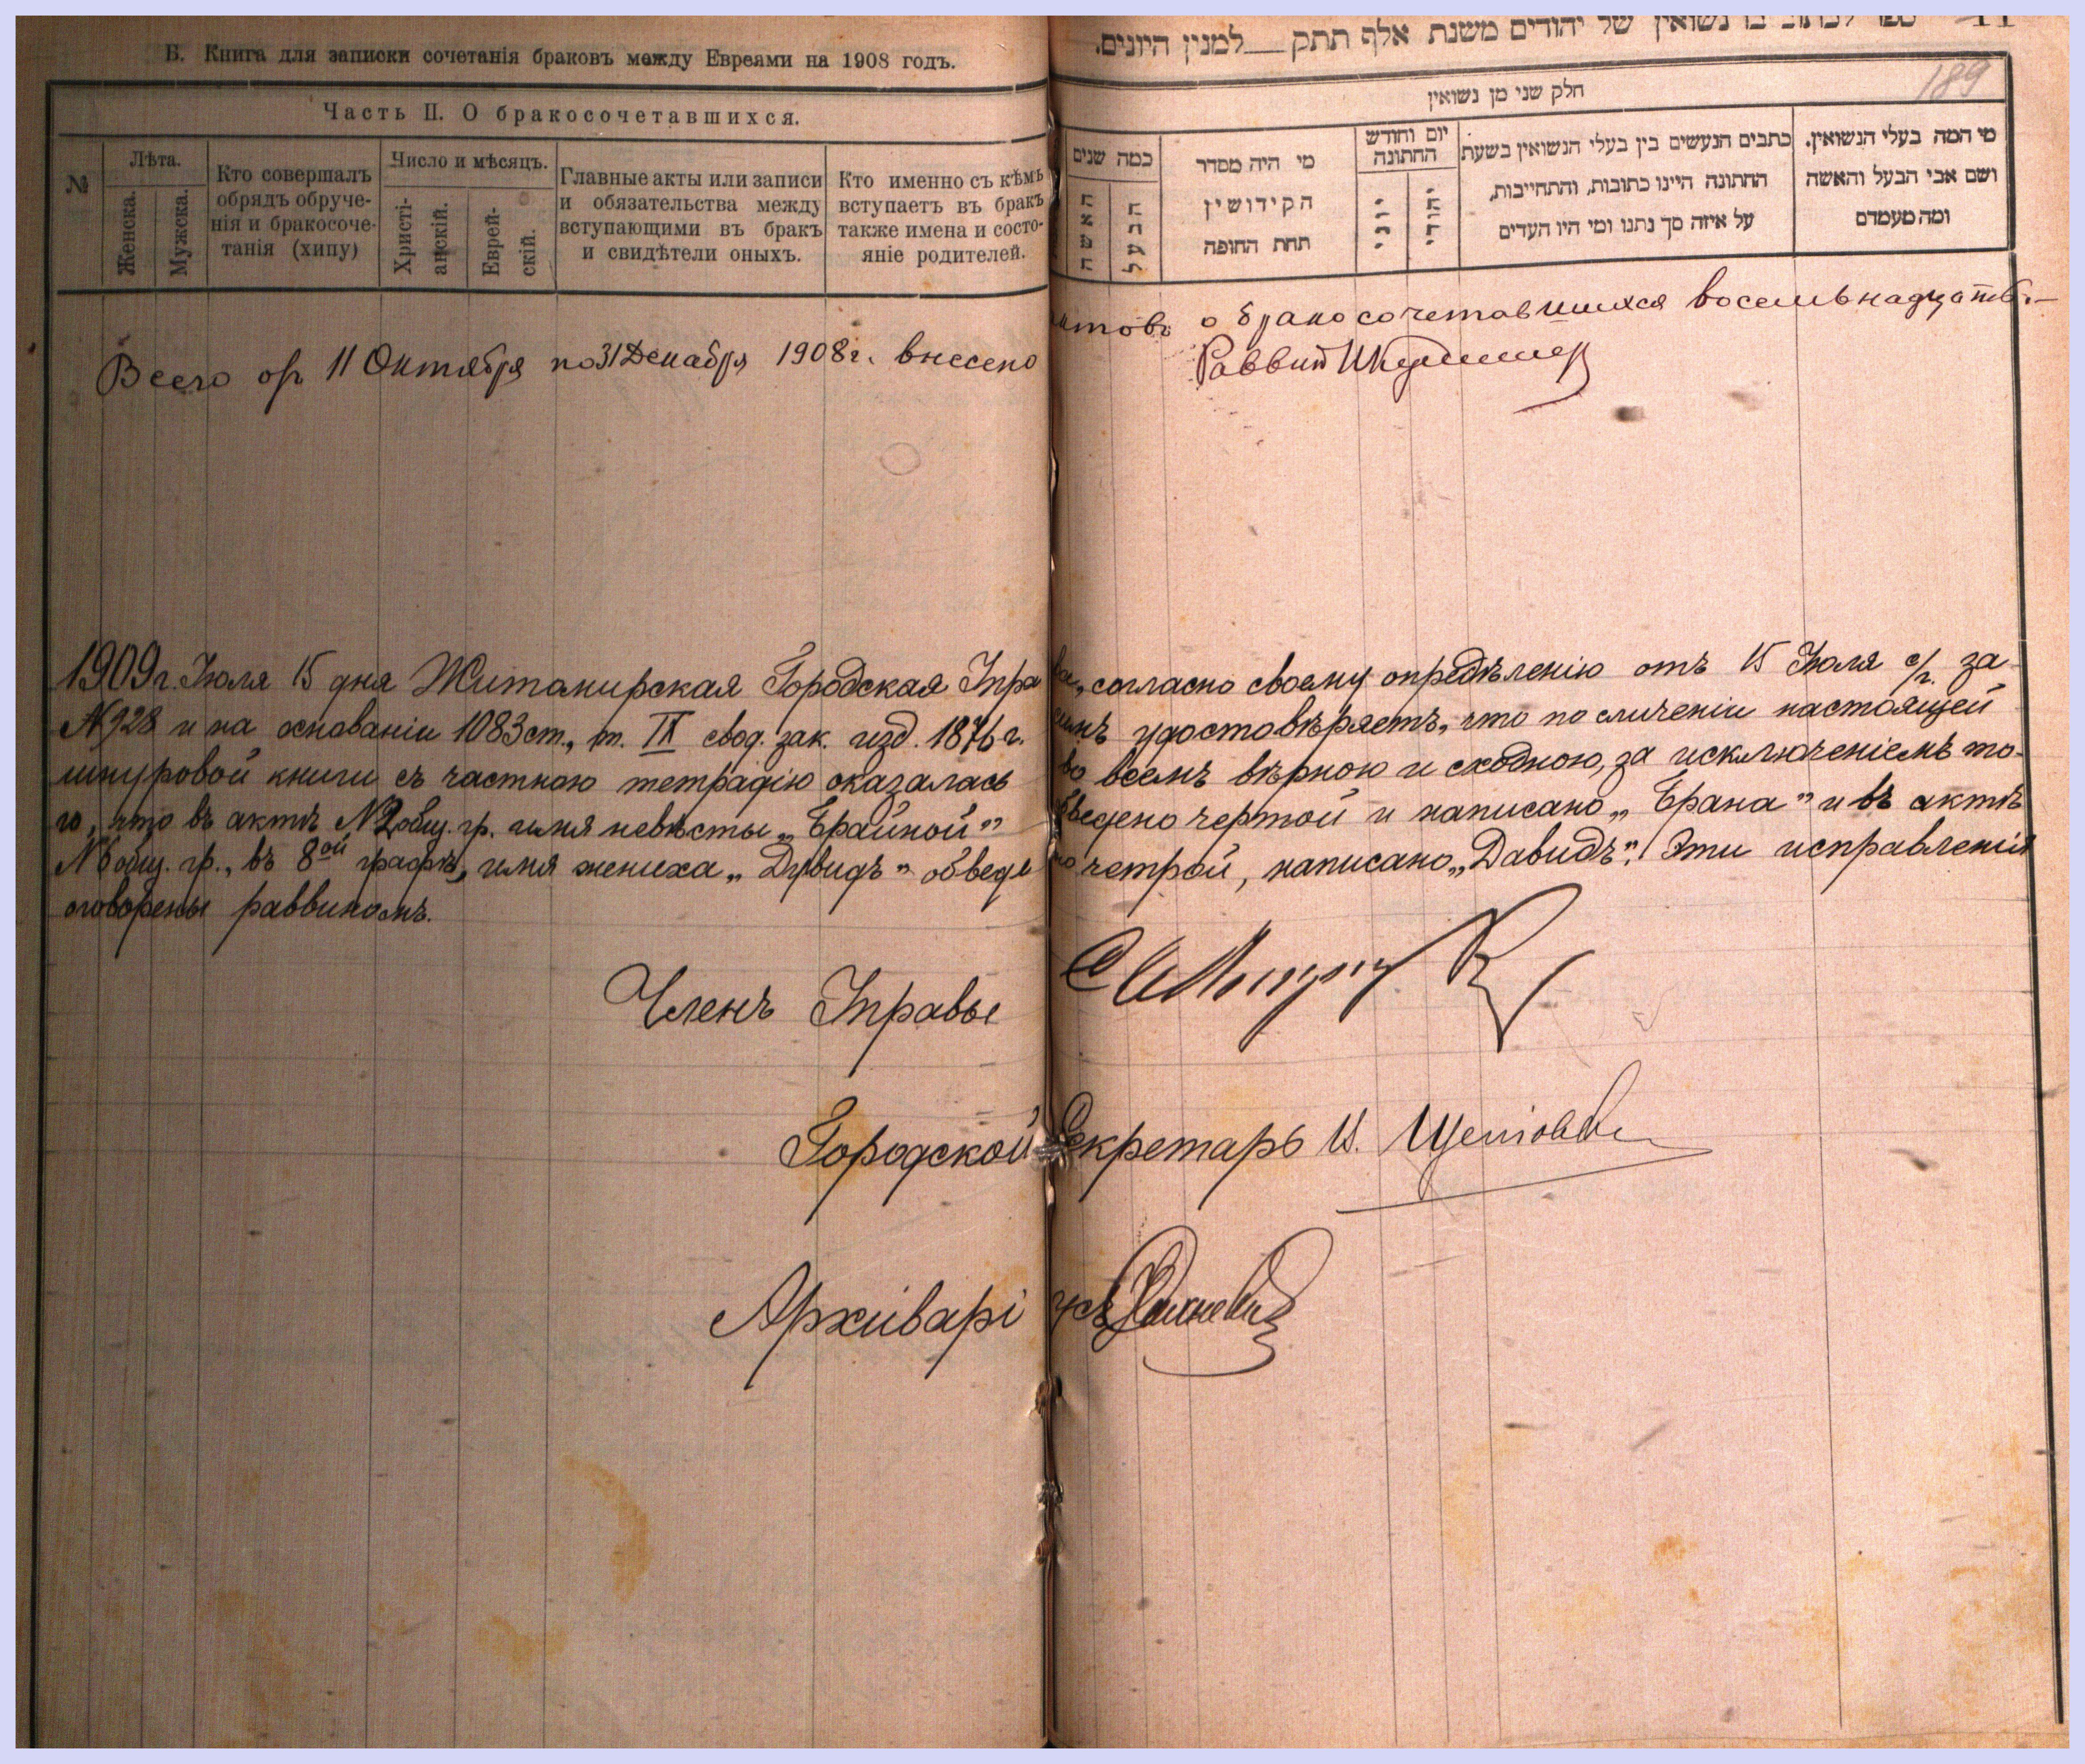 Б. Книга для записки сочетанія браковъ между Евреями на 1908 годъ.
Часть II. О бракосочетавшихся.
№
Лѣта.
Женска.
Мужска.
Кто совершалъ
обрядъ обруче-
нія и бракосоче-
танія (хипу)
Число и мѣсяцъ.
Христі-
анскій.
Еврей-
скій.
Главные акты или записи
и обязательства между
вступающими въ бракъ
и свидѣтели оныхъ.
Кто именно съ кѣмъ
вступаетъ въ бракъ
также имена и состо-
яніе родителей.
נשואין של יהודים משנת אלף תתק למנין היונים.
189
חלק שני מן נשואין
כמה שנים
האשה
הבעל
מי היה מסדר
הקידושין
תחת החופה
יום וחודש
החתונה
יוני
יהודי
כתבים הנעשים בין בעלי הנשואין בשעת
החתונה היינו כתובות, והתחייבות,
על איזה סך נתנו ומי היו העדים
מי המה בעלי הנשואין.
ושם אבי הבעל והאשה
ומה מעמדם
Всего съ 11 Октября по 31 Декабря 1908 г. внесено актовъ о бракосочетавшихся восемьнадцать.
Раввин
1909 г. Іюля 15 дня Житомирская Городская Управа, согласно своему опредѣленію отъ 15 Іюля с/г. за
№ 928 и на основаніи 1083 ст., т. IX свод. зак. изд. 1876 г. симъ удостовѣряетъ, что по сличеніи настоящей
шнуровой книги съ частною тетрадію оказалась во всемъ вѣрною и сходною, за исключеніемъ то-
го, что въ актѣ № 2 общ. гр. имя невѣсты „Брайной" обведено чертой и написано „Брана" и въ актѣ
№ 6 общ. гр., въ 8ой графѣ, имя жениха „Дувидъ" обведено четрой, написано „Давидъ". Эти исправленія
оговорены раввиномъ.
Членъ Управы
Городской Секретарь И.
Архиваріусъ